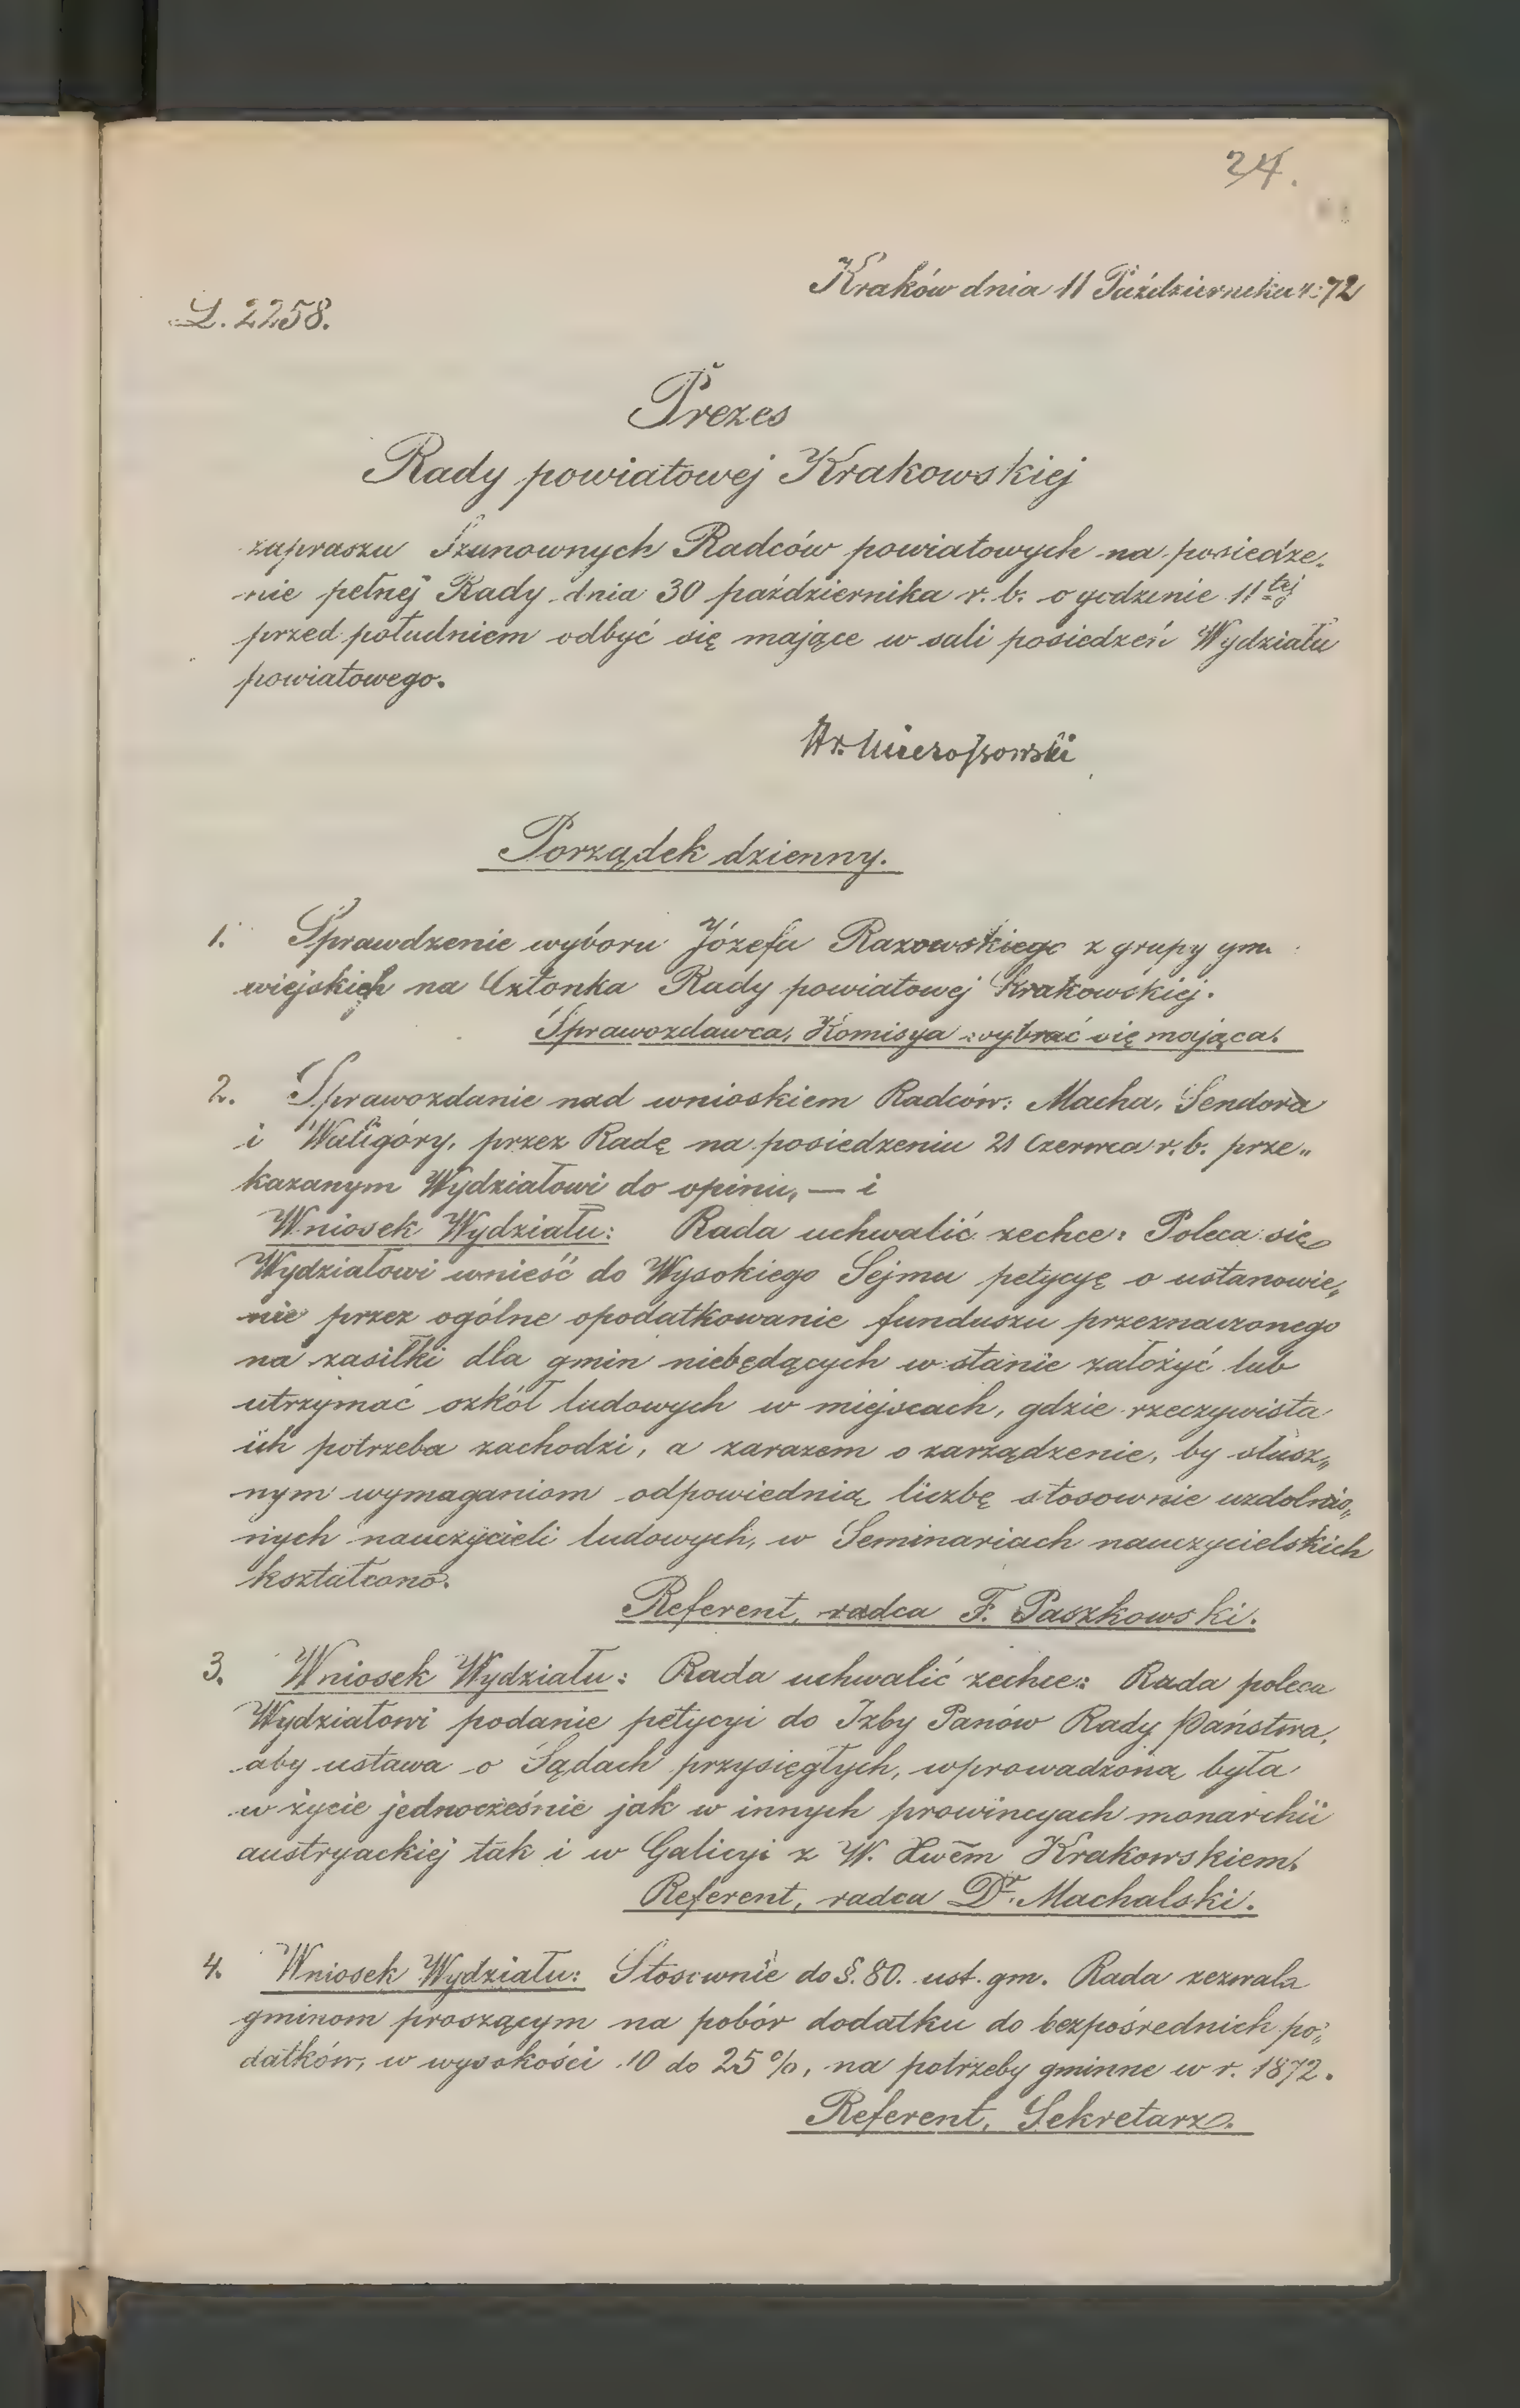 24.
Kraków dnia 11 Października r: 72
L. 2258.
Prezes
Rady powiatowej Krakowskiej
zaprasza Szanownych Radców powiatowych na posiedze„
nie pełnej Rady dnia 30 października r. b. o godzinie 11tej
przed południem odbyć się mające w sali posiedzeń Wydziału
powiatowego.
Mieroszowski
Porządek dzienny.
1. Sprawdzenie wyboru Józefa Razowskiego z grupy gm.
wiejskich na Członka Rady powiatowej Krakowskiej.
Sprawozdawca, Komisya wybrać się mająca.
2. Sprawozdanie nad wnioskiem Radców: Macha, Sendora
i Waligóry, przez Radę na posiedzeniu 21 Czerwca r. b. prze„
kazanym Wydziałowi do opinii, — i
Wniosek Wydziału: Rada uchwalić zechce: Poleca się
Wydziałowi wnieść do Wysokiego Sejmu petycyę o ustanowie„
nie przez ogólne opodatkowanie funduszu przeznaczonego
na zasiłki dla gmin niebędących w stanie założyć lub
utrzymać szkół ludowych w miejscach, gdzie rzeczywista
ich potrzeba zachodzi, a zarazem o zarządzenie, by słusz„
nym wymaganiom odpowiednią liczbę stosownie uzdolnio„
nych nauczycieli ludowych, w Seminariach nauczycielskich
kształcono.
Referent, radca F. Paszkowski.
3. Wniosek Wydziału: Rada uchwalić zechce: Rada poleca
Wydziałowi podanie petycyi do Izby Panów Rady Państwa,
aby ustawa o Sądach przysięgłych, wprowadzoną była
w życie jednocześnie jak w innych prowincyach monarchii
austryackiej tak i w Galicyi z W. Xwem Krakowskiem.
Referent, radca Dr. Machalski.
4. Wniosek Wydziału: Stosownie do §. 80. ust. gm. Rada zezwala
gminom proszącym na pobór dodatku do bezpośrednich po„
datków, w wysokości 10 do 25%, na potrzeby gminne w r. 1872.
Referent, Sekretarz.